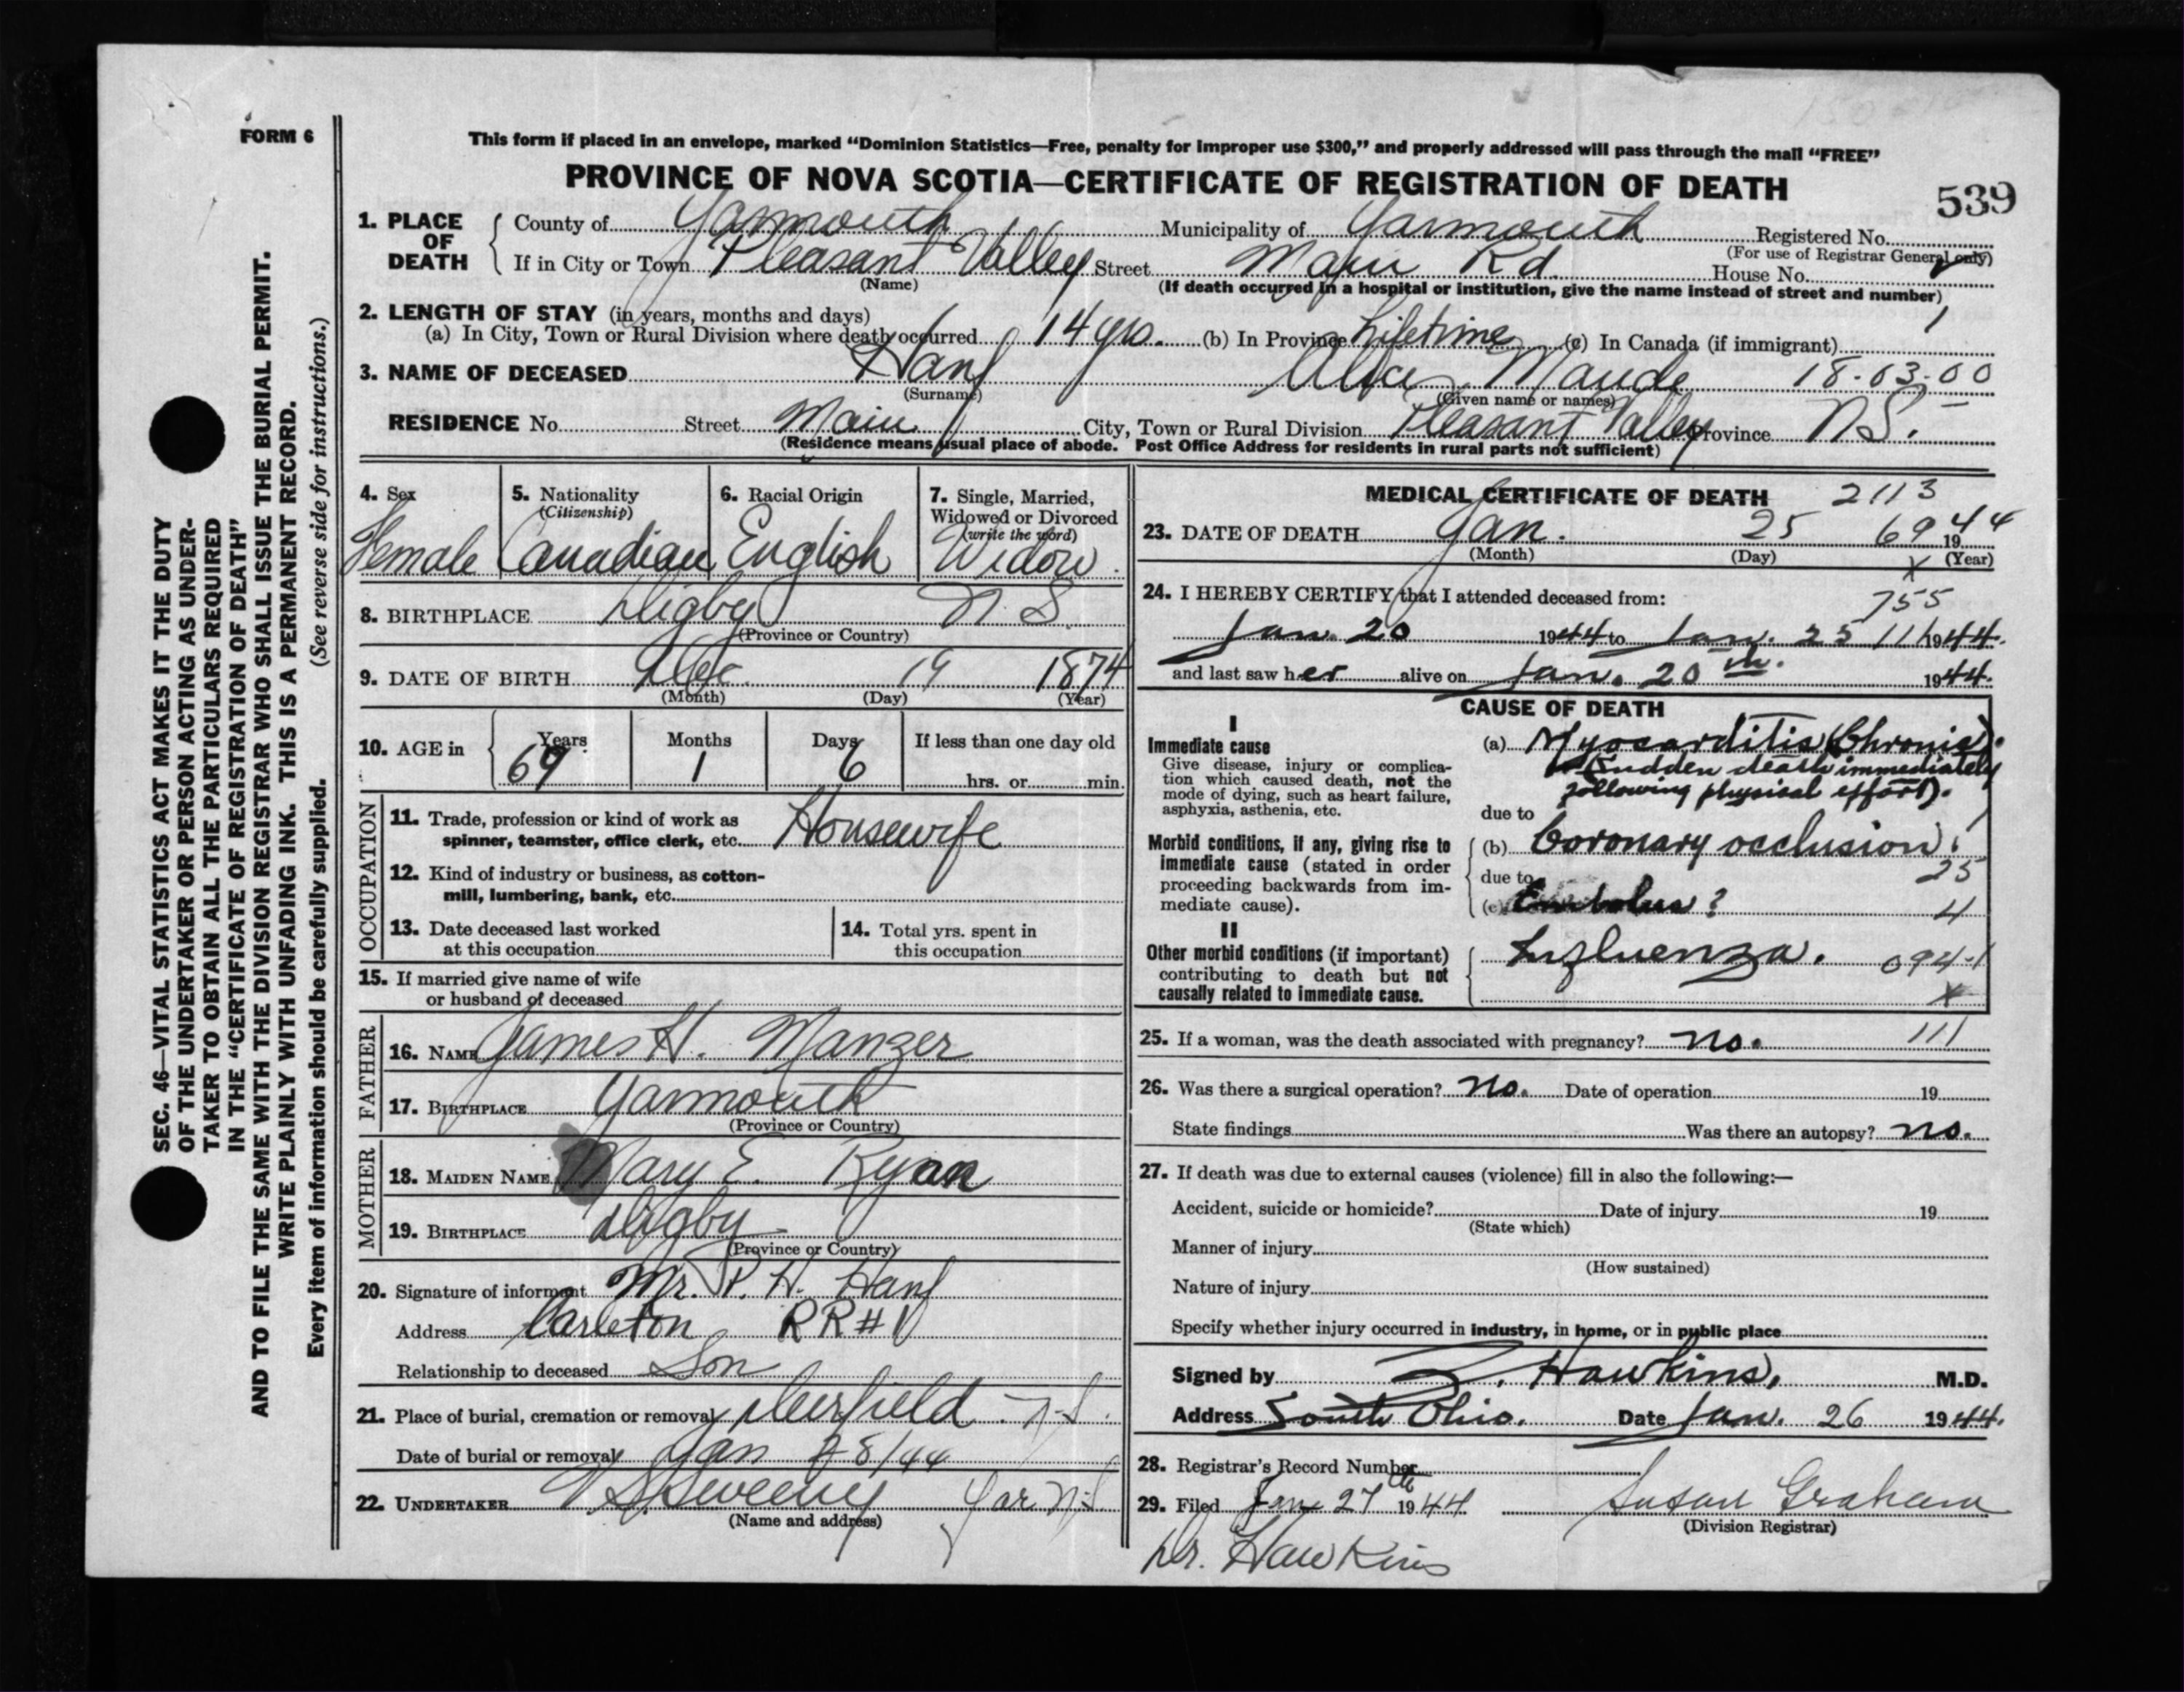 FORM 6
This form if placed in an envelope, marked "Dominion Statistics—Free, penalty for improper use $300," and properly addressed will pass through the mail "FREE"
PROVINCE OF NOVA SCOTIA—CERTIFICATE OF REGISTRATION OF DEATH
539
SEC. 46—VITAL STATISTICS ACT MAKES IT THE DUTY
OF THE UNDERTAKER OR PERSON ACTING AS UNDER-
TAKER TO OBTAIN ALL THE PARTICULARS REQUIRED
IN THE "CERTIFICATE OF REGISTRATION OF DEATH"
AND TO FILE THE SAME WITH THE DIVISION REGISTRAR WHO SHALL ISSUE THE BURIAL PERMIT.
WRITE PLAINLY WITH UNFADING INK. THIS IS A PERMANENT RECORD.
Every item of information should be carefully supplied. (See reverse side for instructions.)
1. PLACE OF DEATH County of Yarmouth Municipality of Yarmouth Registered No.
(For use of Registrar General only)
If in City or Town Pleasant Valley Street Main Rd. House No.
(Name) (If death occurred in a hospital or institution, give the name instead of street and number)
2. LENGTH OF STAY (in years, months and days) 1
(a) In City, Town or Rural Division where death occurred 14 yrs. (b) In Province Lifetime (c) In Canada (if immigrant)
3. NAME OF DECEASED Hanf Alice Maude 18-03-00
(Surname) (Given name or names)
RESIDENCE No. Street Main City, Town or Rural Division Pleasant Valley Province N.S.
(Residence means usual place of abode. Post Office Address for residents in rural parts not sufficient)
4. Sex Female
5. Nationality (Citizenship) Canadian
6. Racial Origin English
7. Single, Married, Widowed or Divorced (write the word) Widow.
8. BIRTHPLACE Digby N.S.
(Province or Country)
9. DATE OF BIRTH Dec 19 1874
(Month) (Day) (Year)
10. AGE in Years 69 Months 1 Days 6 If less than one day old hrs. or min.
OCCUPATION
11. Trade, profession or kind of work as
spinner, teamster, office clerk, etc. Housewife
12. Kind of industry or business, as cotton-
mill, lumbering, bank, etc.
13. Date deceased last worked
at this occupation
14. Total yrs. spent in
this occupation
15. If married give name of wife
or husband of deceased
FATHER
16. NAME James H. Manzer
17. BIRTHPLACE Yarmouth
(Province or Country)
MOTHER
18. MAIDEN NAME Mary E. Ryan
19. BIRTHPLACE Digby
(Province or Country)
20. Signature of informant Mr. P. H. Hanf
Address Carleton RR#1
Relationship to deceased Son
21. Place of burial, cremation or removal Deerfield N.S.
Date of burial or removal Jan 28/44
22. UNDERTAKER Sweeny Yar. N.S
(Name and address)
MEDICAL CERTIFICATE OF DEATH 2113
23. DATE OF DEATH Jan. 25 69 1944
(Month) (Day) X (Year)
24. I HEREBY CERTIFY that I attended deceased from: 755
Jan. 20 1944 to Jan. 25 11 1944.
and last saw her alive on Jan. 20th. 1944.
CAUSE OF DEATH
I
Immediate cause
Give disease, injury or complica-
tion which caused death, not the
mode of dying, such as heart failure,
asphyxia, asthenia, etc.
(a) Myocarditis (Chronic).
(Sudden death immediately
following physical effort).
due to
Morbid conditions, if any, giving rise to
immediate cause (stated in order
proceeding backwards from im-
mediate cause).
(b) Coronary occlusion.
due to 25
(c) Embolus? 4
II
Other morbid conditions (if important)
contributing to death but not
causally related to immediate cause.
Influenza. 094-1
X
25. If a woman, was the death associated with pregnancy? no. 111
26. Was there a surgical operation? no. Date of operation 19
State findings Was there an autopsy? no.
27. If death was due to external causes (violence) fill in also the following:—
Accident, suicide or homicide? Date of injury 19
(State which)
Manner of injury
(How sustained)
Nature of injury
Specify whether injury occurred in industry, in home, or in public place
Signed by Hawkins, M.D.
Address South Ohio. Date Jan. 26 1944.
28. Registrar's Record Number
29. Filed Jan 27th 1944 Susan Graham
(Division Registrar)
Dr. Hawkins